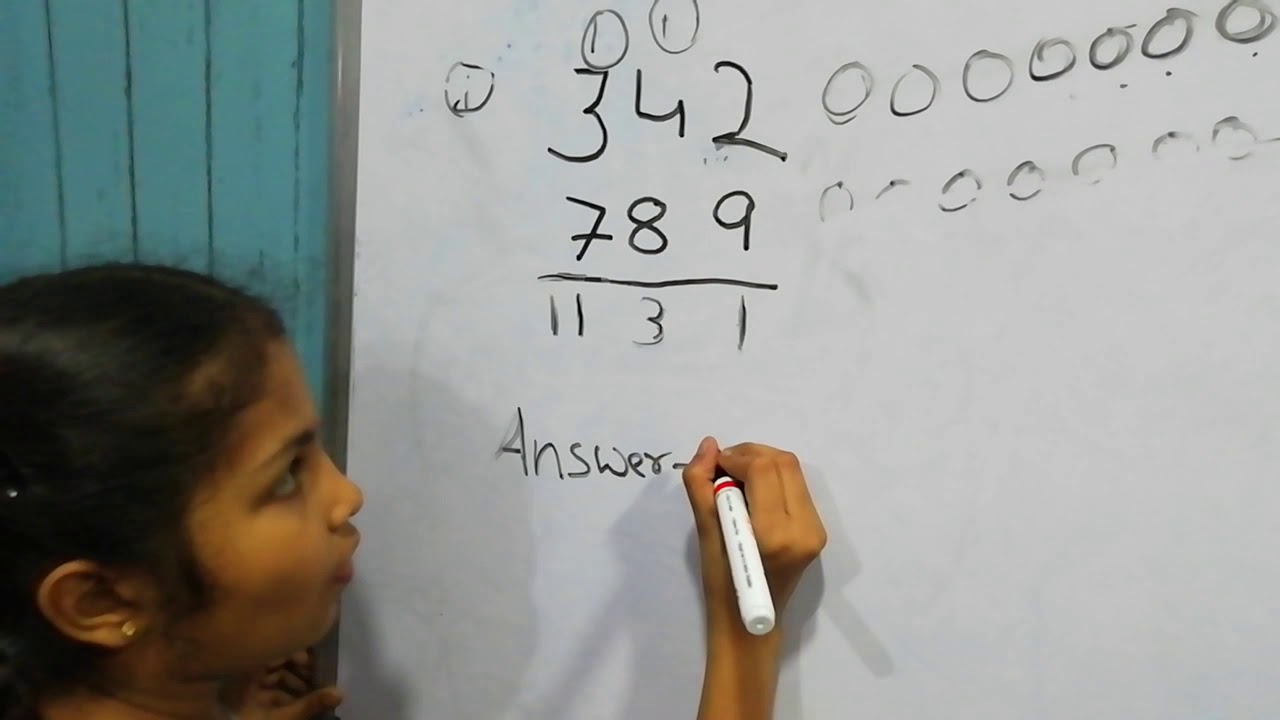 1 1
+ 342
789
11 3 1
Answer-